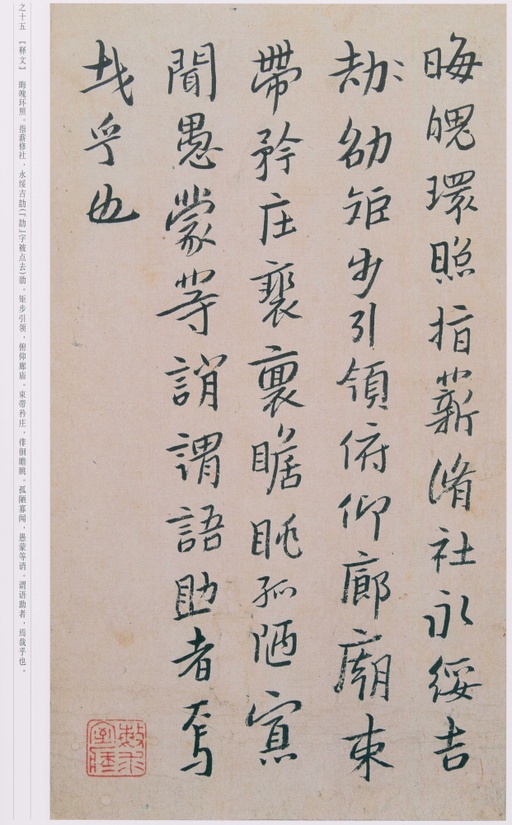 晦魄環照指薪脩社永綏吉
劫劭矩步引領俯仰廊廟束
帶矜庄裵褱瞻眺孤陋寡
聞愚蒙等誚謂語助者焉
哉乎也
之十五 【释文】 晦魄环照。指薪修社，永绥吉劫（「劫」字被点去）劭。矩步引领，俯仰廊庙。束带矜庄，俳徊瞻眺。孤陋寡闻，愚蒙等诮。谓语助者，焉哉乎也。